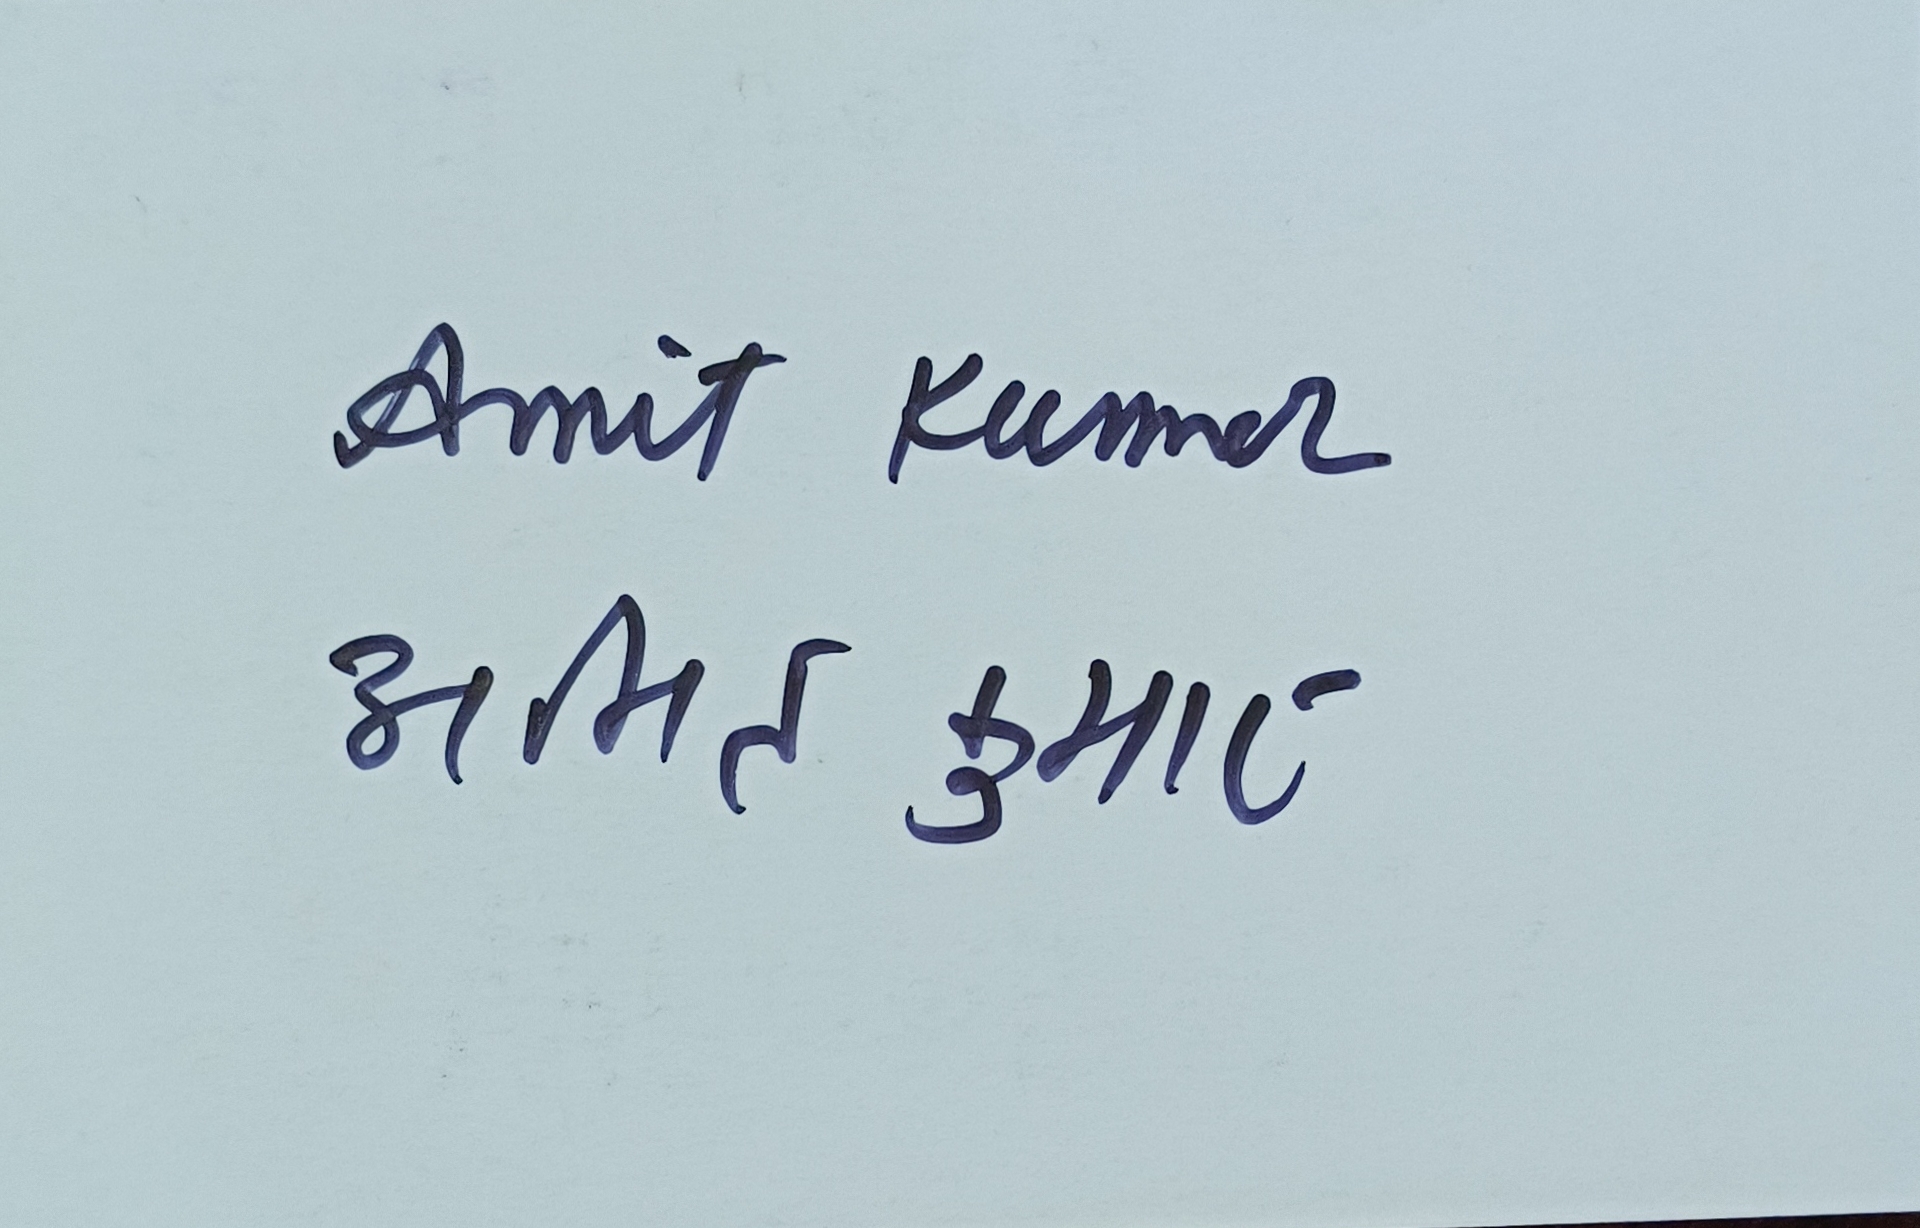 Amit Kumar
अमित कुमार